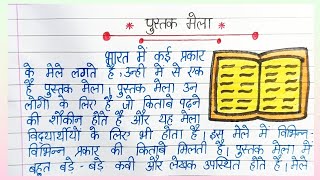 पुस्तक मेला
भारत में कई प्रकार
के मेले लगते है, उन्ही में से एक
है पुस्तक मेला। पुस्तक मेला उन
लोगो के लिए है जो किताबे पढ़ने
की शौकीन होते है और यह मेला
विद्यार्थीयो के लिए भी होता है। इस मेले में विभिन्न-
विभिन्न प्रकार की किताबे मिलती है। पुस्तक मेला में
बहुत बड़े - बड़े कवी और लेखक उपस्थित होते है। मेले